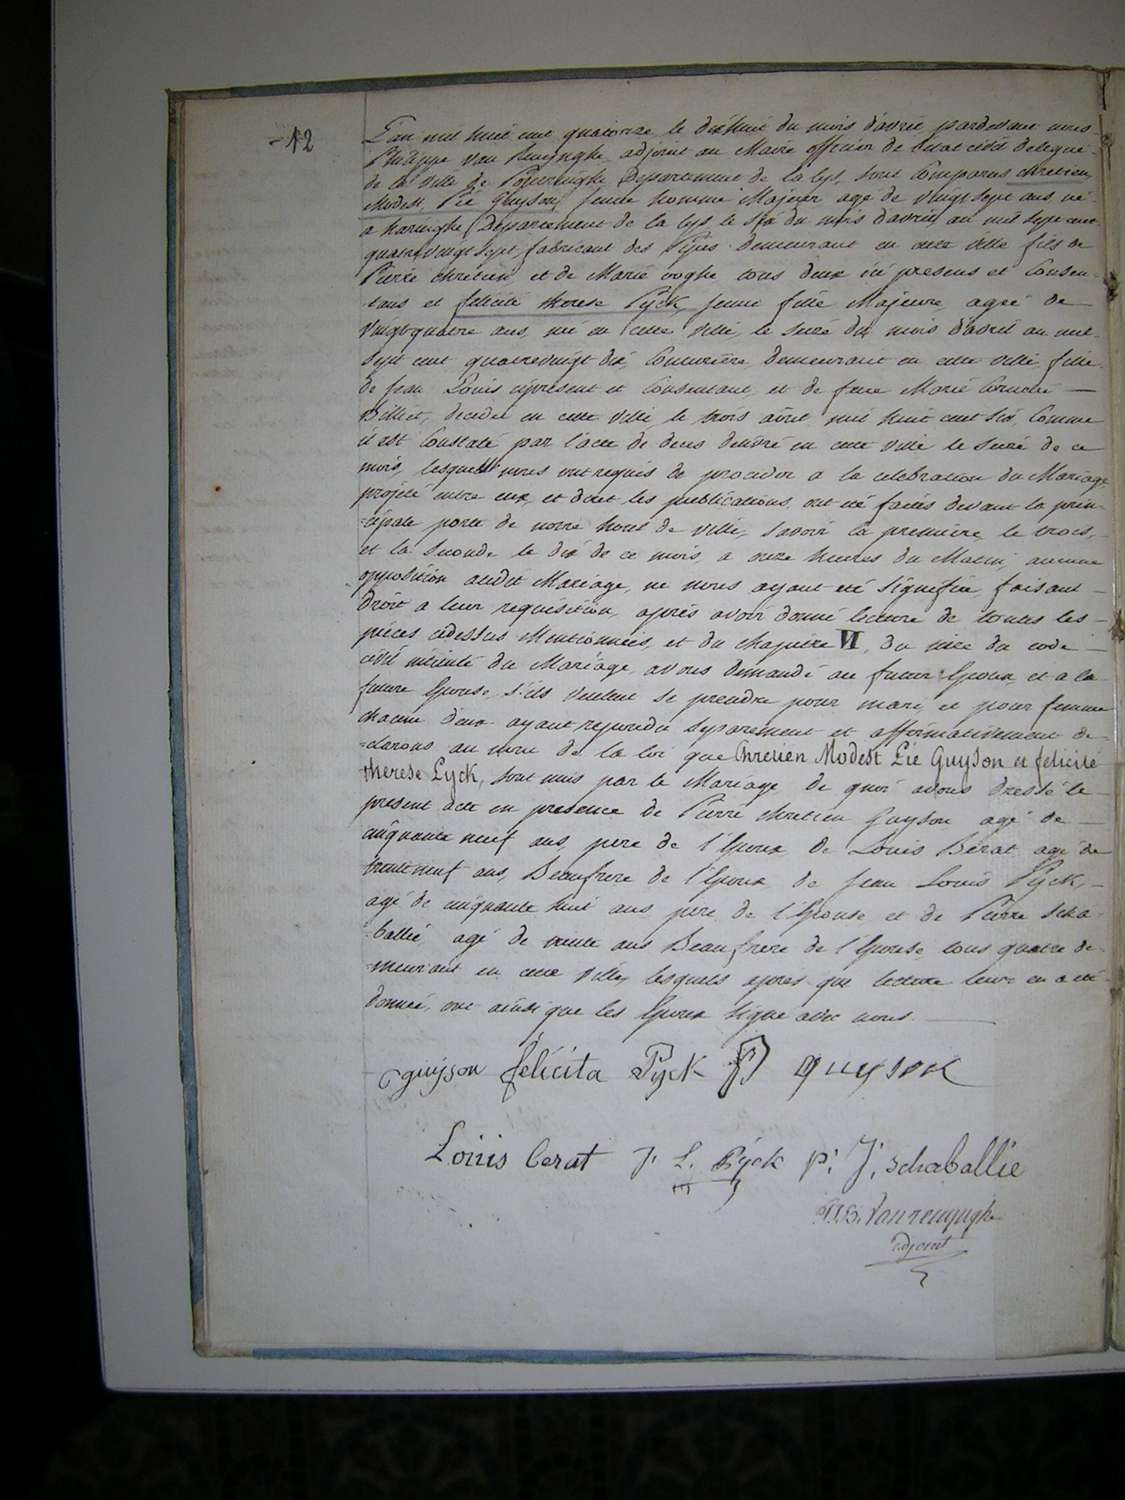 -12
L'an mil huit cent quatorze le dixhuit du mois d'avril pardevant nous
Philippe van Renynghe adjoint au Maire officier de l'etat civil delegué
de la ville de Poperinghe Departement de la Lys, sont Comparus chretien
Modest Pié Guyson, jeune homme Majeur agé de vingt sept ans, né
a haringhe Departement de la Lys le six du mois d'avril an mil sept cent
quatre vingt sept, fabricant des Pipes demeurant en cette ville fils de
Pierre Chretien et de Marie boghe tous deux ici presens et Consen-
tans et felicité therese Pyck, jeune fille Majeure, agée de
vingt quatre ans, née en cette ville, le seize du mois d'avril an mil
sept cent quatrevingt dix, Couturière demeurant en cette ville fille
de jean Louis cipresent et Consentant, et de feue Marie
Billiet, decedée en cette ville le trois août mil huit cent six, Comme
il est Constaté par l'acte de deces delivré en cette ville le seize de ce
mois, lesquels nous ont requis de proceder a la celebration du Mariage
projété entre eux, et dont les publications ont été faites devant la prin-
=cipale porte de notre hotel de ville, savoir la premiere le trois,
et la seconde le dix de ce mois, a onze heures du Matin, aucune
opposition audit Mariage, ne nous ayant eté signifiée, faisant
droit a leur requisition, après avoir donné lecture de toutes les
pièces cidessus Mentionnées, et du chapitre VI, du titre du code
civil intitulé du Mariage, avons demandé au futur Epoux, et a la
future Epouse, s'ils veulent se prendre pour mari et pour femme
chacun d'eux ayant repondu separement et affirmativement de-
=clarons au nom de la loi que Chretien Modest Pié Guyson et felicité
therese Pyck, sont unis par le Mariage, de quoi avons dressé le
present acte en presence de Pierre chretien Guyson agé de
cinquante neuf ans, pere de l'Epoux de Louis Berat agé de
trente neuf ans, Beaufrere de l'Epoux de Jean Louis Pyck,
agé de cinquante huit ans pere de l'Epouse et de Pierre Scha-
=ballié, agé de trente ans Beaufrere de l'Epouse tous quatre de-
=meurant en cette ville, lesquels après que lecture leur en a eté
donnée, ont ainsi que les Epoux signé avec nous.
guijson felicita Pyck P guyson
Loiiis berat J. L. Pÿck p. J. schaballie
Vanrenynghe
adjoint